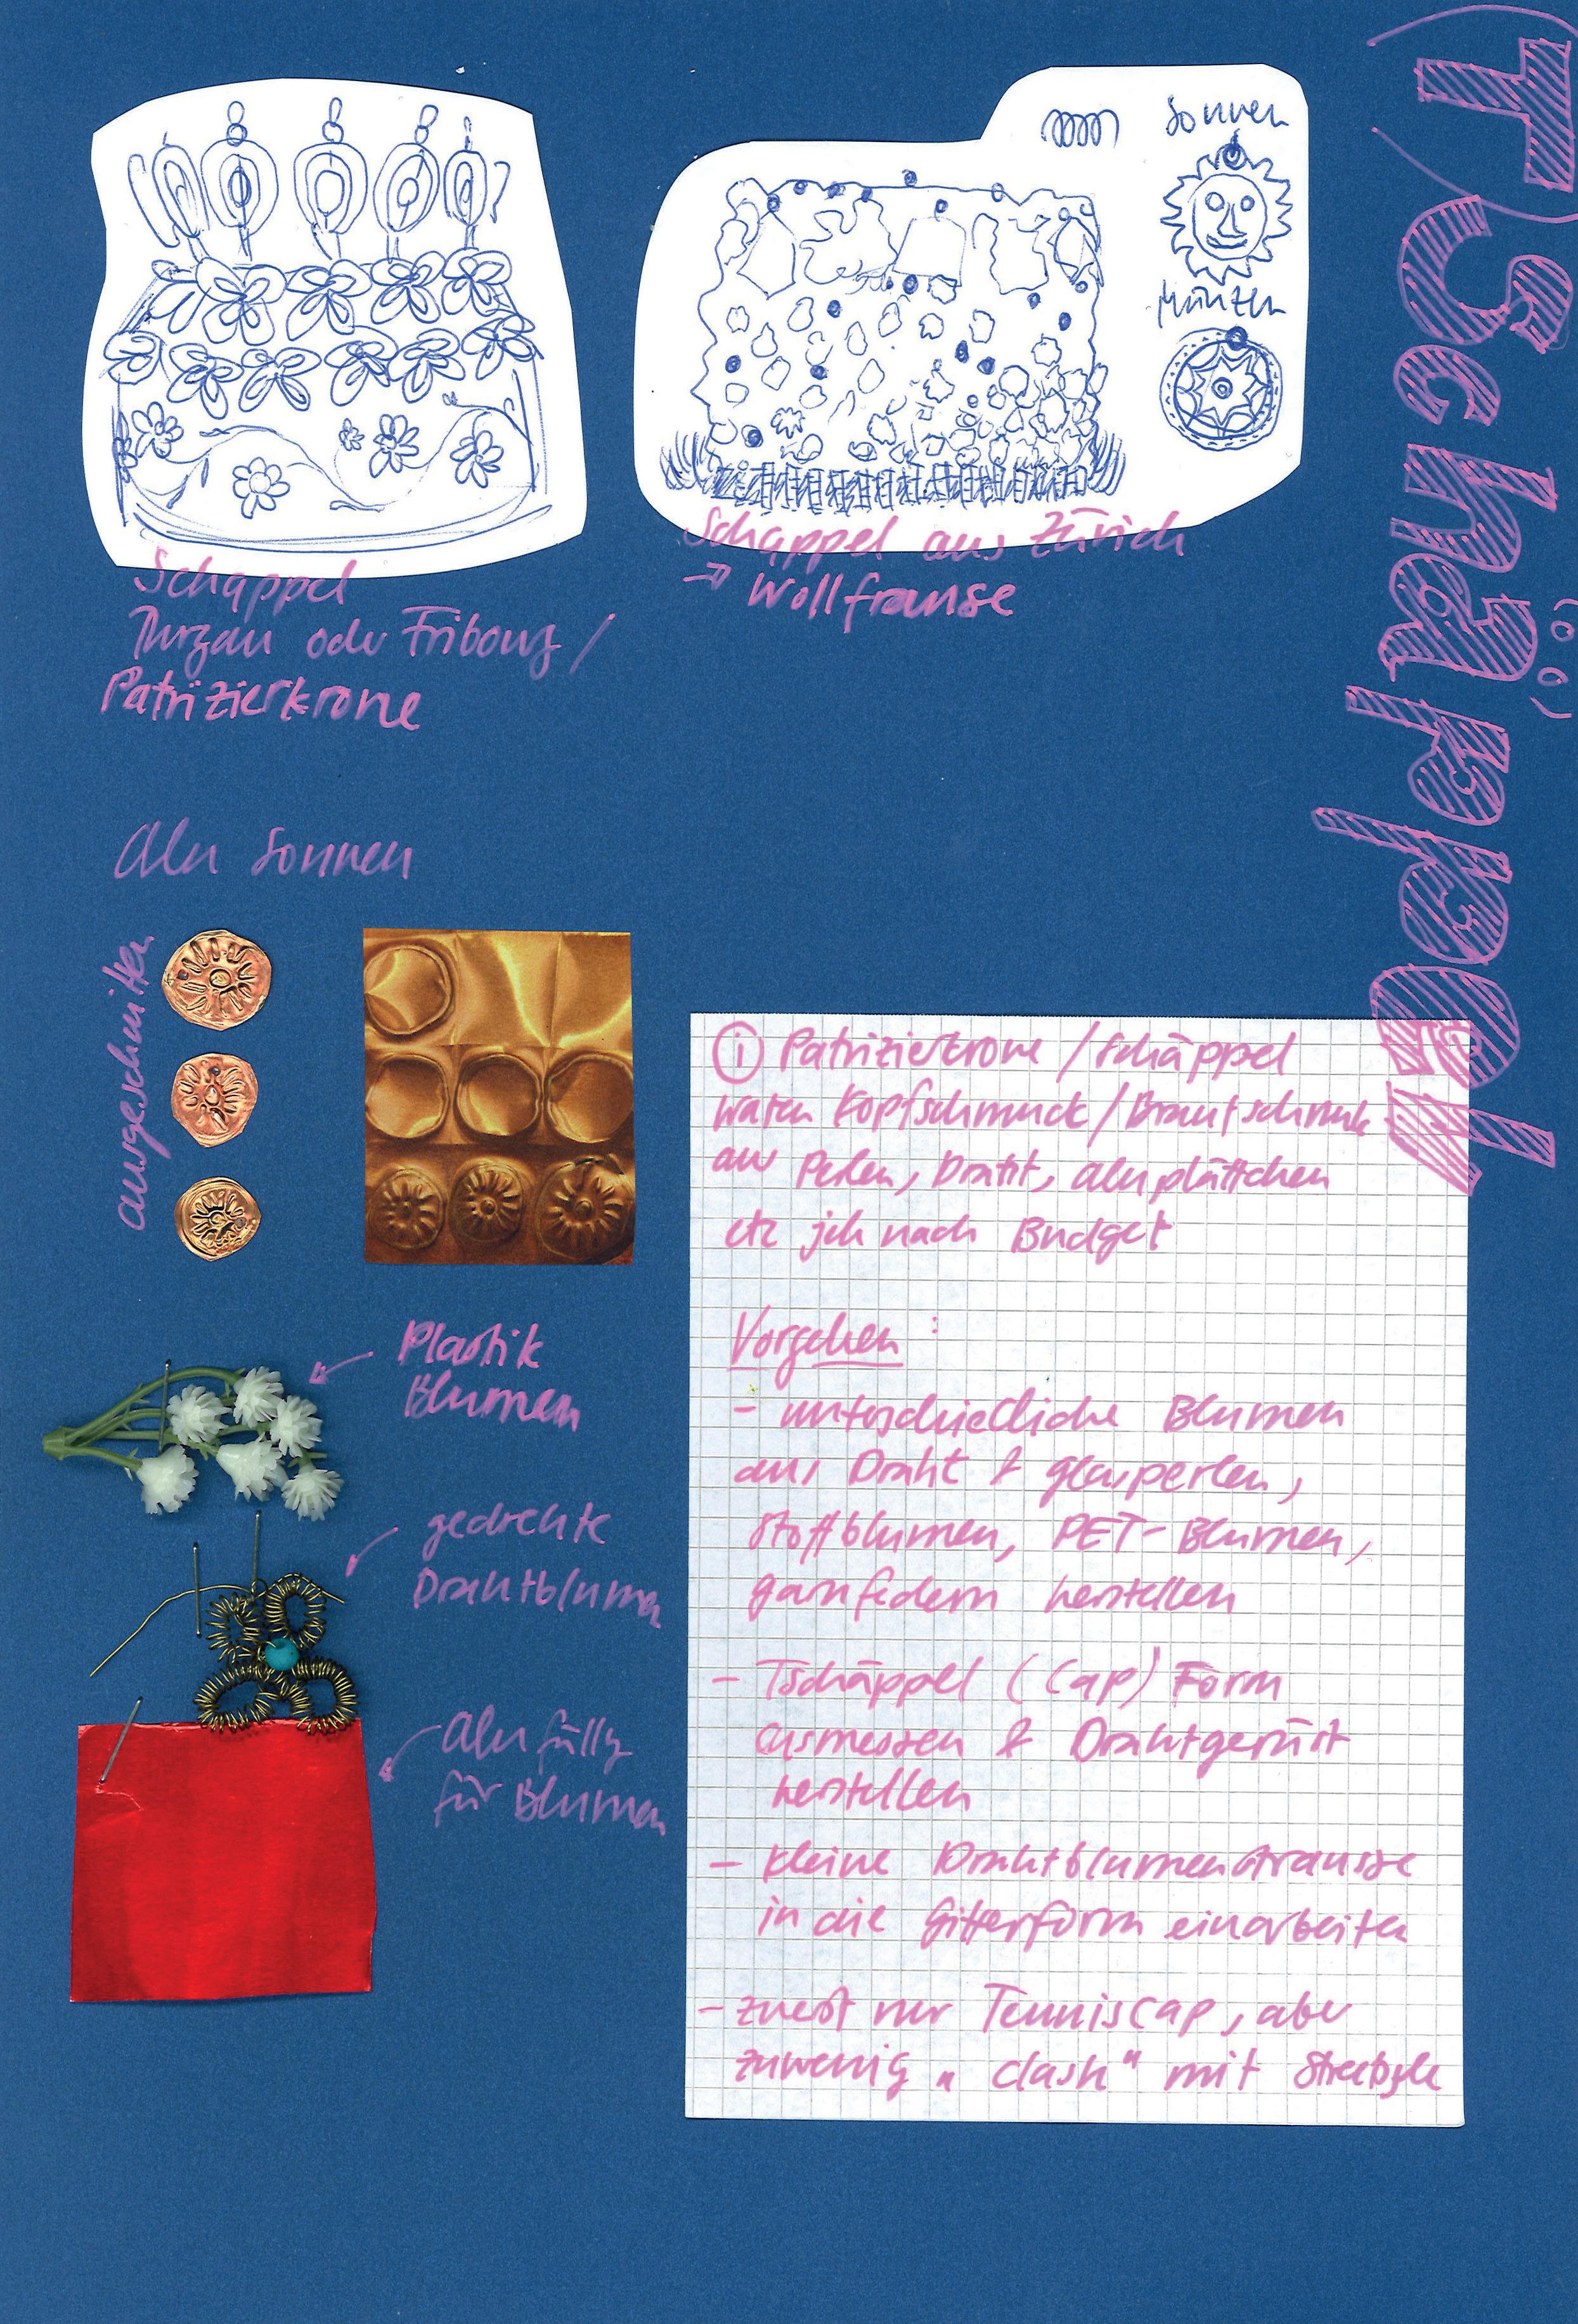 (T)Schäppel
Sonnen
Münzen
Schäppel
Thurgau oder Fribourg /
Patrizierkrone
Schäppel aus Zürich
→ Wollfranse
Alu Sonnen
ausgeschnitten
Plastik
Blumen
gedrehte
Drahtblumen
Alu
für Blumen
i Patrizierkrone / Schäppel
waren Kopfschmuck / Brautschmuck
aus Perlen, Draht, Aluplättchen
etc jeh nach Budget
Vorgehen:
- unterschiedliche Blumen
aus Draht & Glasperlen,
Stoffblumen, PET-Blumen,
herstellen
- Tschäppel (Cap) Form
ausmessen & Drahtgerüst
herstellen
- kleine Drahtblumensträusse
in die Gitterform einarbeiten
- zuerst nur Tenniscap, aber
zuwenig „clash“ mit Streetstyle